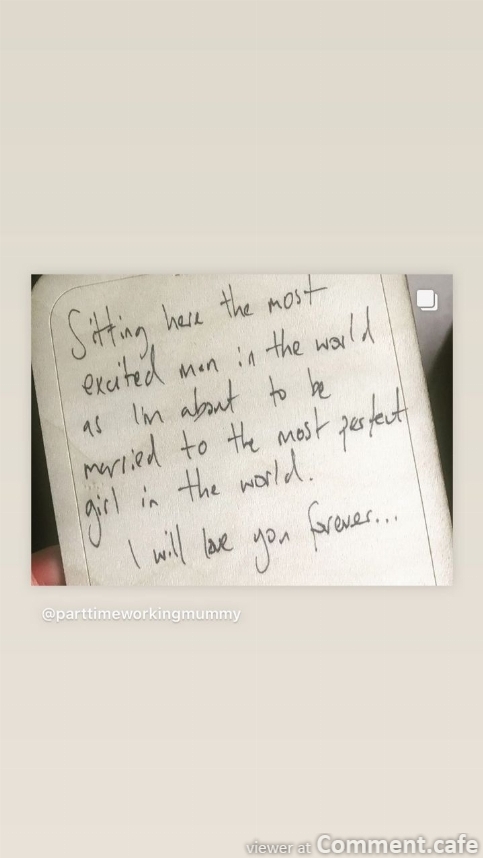 Sitting here the most
excited man in the world
as I'm about to be
married to the most perfect
girl in the world.
I will love you forever...
@parttimeworkingmummy
viewer at Comment.cafe